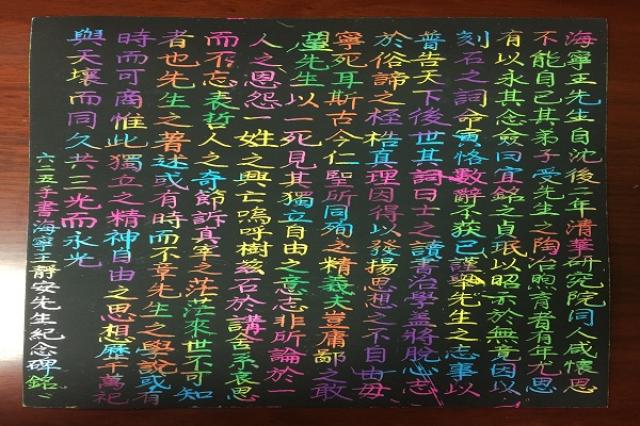 海寧王先生自沈後二年清華研究院同人咸懷思
不能自已其弟子受先生之陶冶煦育者有年尤思
有以永其念僉曰宜銘之貞珉以昭示於無竟因以
刻石之詞命寅恪數辭不獲已謹舉先生之志事以
普告天下後世其詞曰士之讀書治學蓋將脫心志
於俗諦之桎梏真理因得以發揚思想之不自由毋
寧死耳斯古今仁聖所同殉之精義夫豈庸鄙之敢
望先生以一死見其獨立自由之意志非所論於一
人之恩怨一姓之興亡嗚呼樹茲石於講舍系哀思
而不忘表哲人之奇節訴真宰之茫茫來世不可知
者也先生之著述或有時而不章先生之學說或有
時而可商惟此獨立之精神自由之思想歷千萬祀
與天壤而同久共三光而永光
六二五手書海寧王靜安先生紀念碑銘